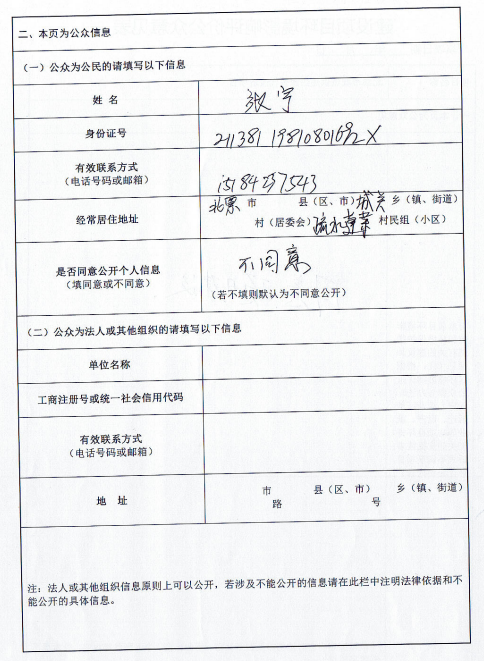 二、本页为公众信息
（一）公众为公民的请填写以下信息
姓 名 张宁
身份证号
有效联系方式
（电话号码或邮箱） 15184237543
北票 市 县（区、市）城关 乡（镇、街道）
经常居住地址
村（居委会） 村民组（小区）
是否同意公开个人信息 不同意
（填同意或不同意）
（若不填则默认为不同意公开）
（二）公众为法人或其他组织的请填写以下信息
单位名称
工商注册号或统一社会信用代码
有效联系方式
（电话号码或邮箱）
市 县（区、市） 乡（镇、街道）
地 址
路 号
注：法人或其他组织信息原则上可以公开，若涉及不能公开的信息请在此栏中注明法律依据和不
能公开的具体信息。